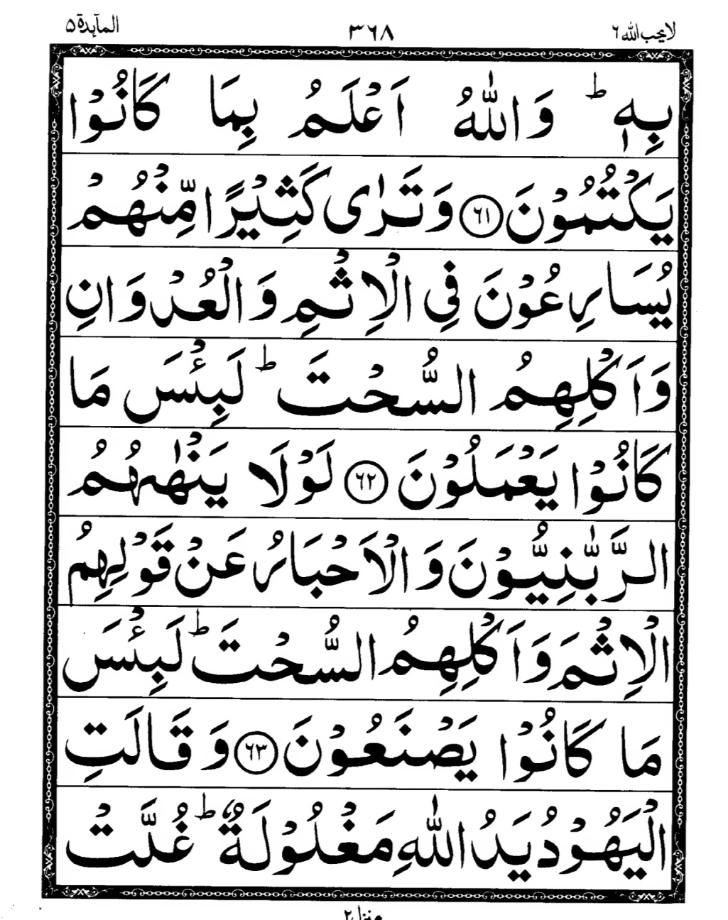 لا یحب الله ٦ ٣٦٨ المآىدة ٥
بِهٖ ؕ وَاللّٰهُ اَعْلَمُ بِمَا كَانُوْا
يَكْتُمُوْنَ ﴿٦١﴾ وَتَرٰى كَثِيْرًا مِّنْهُمْ
يُسَارِعُوْنَ فِى الْاِثْمِ وَالْعُدْوَانِ
وَاَكْلِهِمُ السُّحْتَ ؕ لَبِئْسَ مَا
كَانُوْا يَعْمَلُوْنَ ﴿٦٢﴾ لَوْلَا يَنْهٰىهُمُ
الرَّبّٰنِيُّوْنَ وَالْاَحْبَارُ عَنْ قَوْلِهِمُ
الْاِثْمَ وَاَكْلِهِمُ السُّحْتَ ؕ لَبِئْسَ
مَا كَانُوْا يَصْنَعُوْنَ ﴿٦٣﴾ وَقَالَتِ
الْيَهُوْدُ يَدُ اللّٰهِ مَغْلُوْلَةٌ ؕ غُلَّتْ
منزل ٢